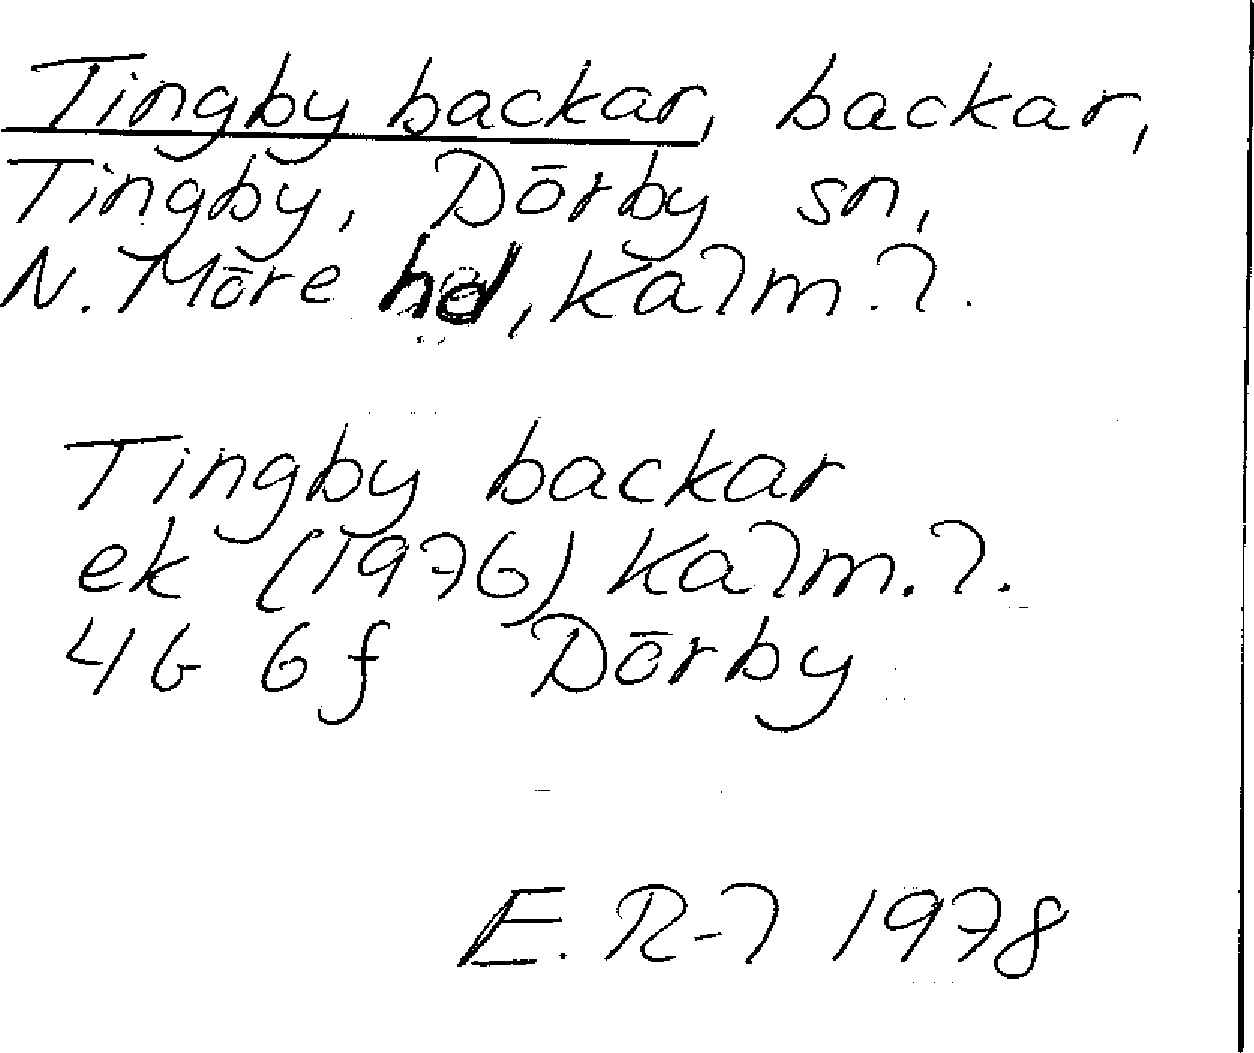 Tingby backar, backar,
Tingby, Dörby sn,
N. Möre hd, Kalm. l.
Tingby backar
ek (1976) Kalm. l.
4G 6f Dörby
E. R-l 1978